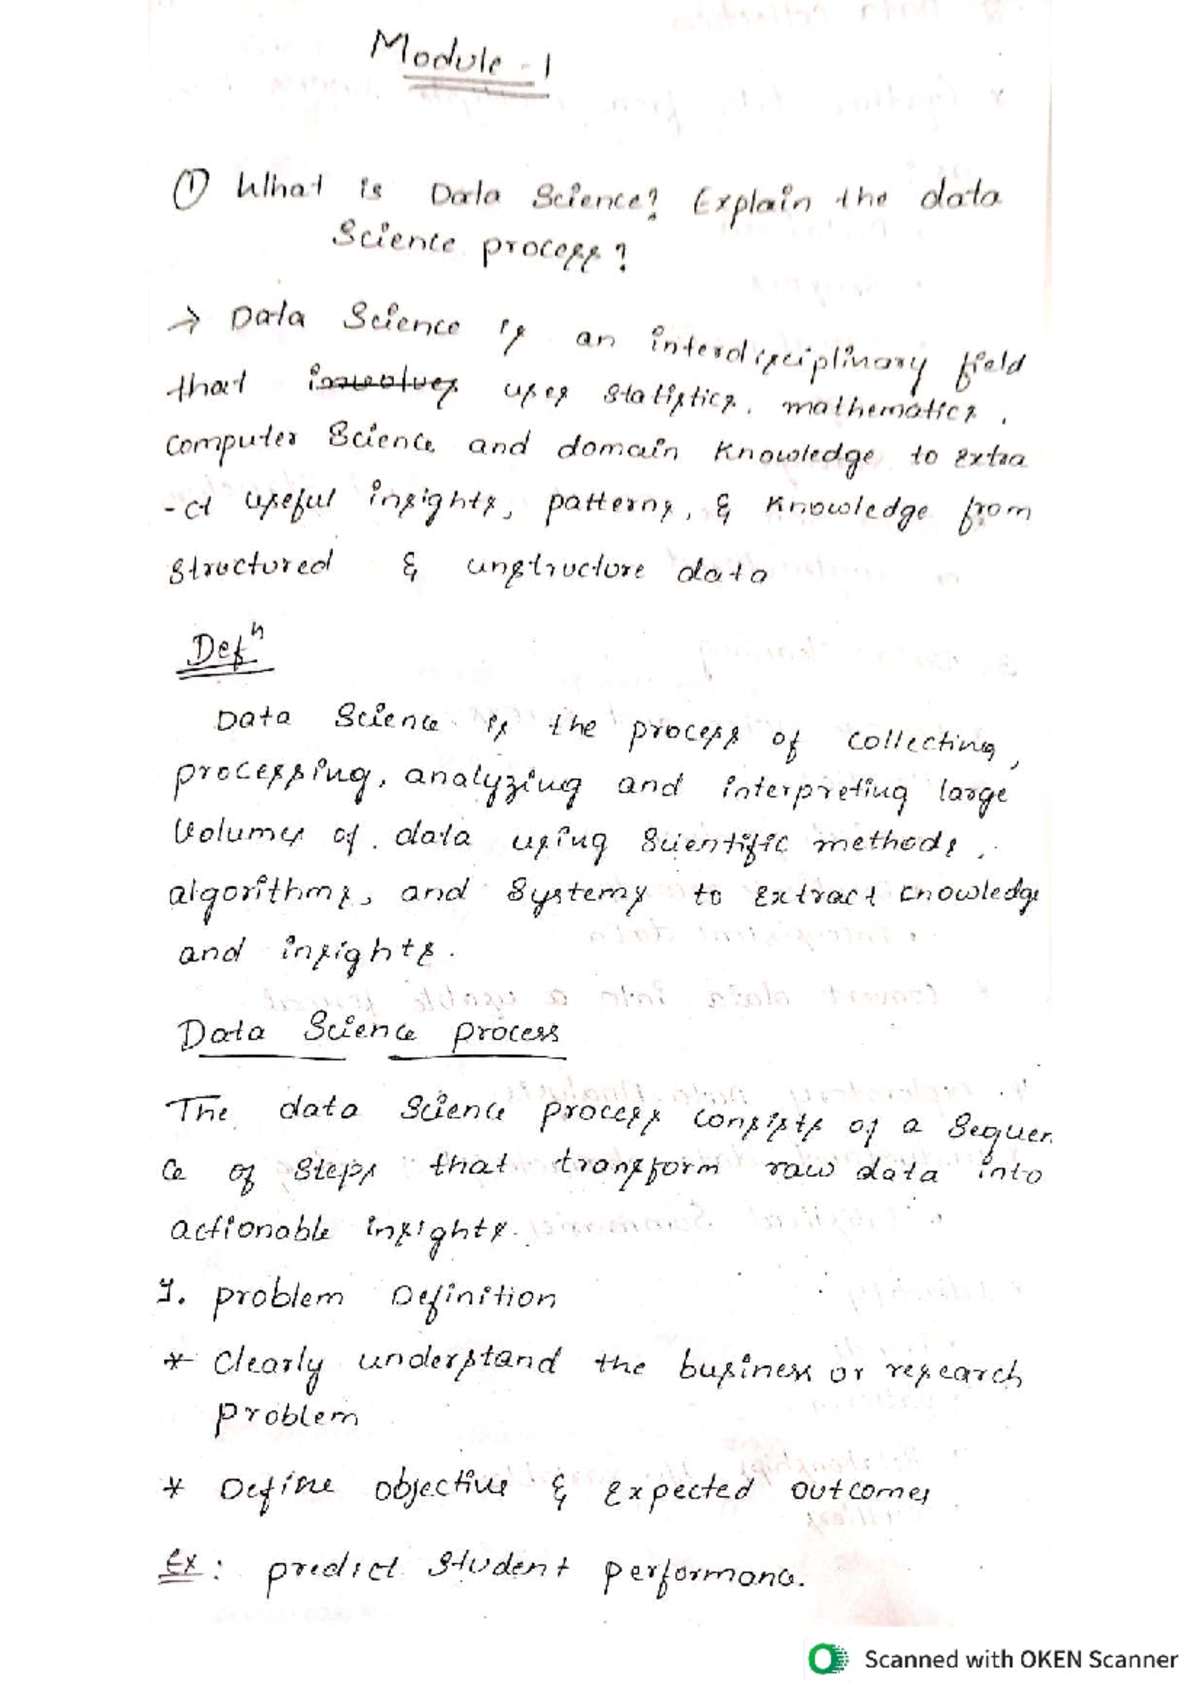 Module - 1
① What is Data Science? Explain the data
Science process?
→ Data Science is an interdisciplinary field
that involves uses statistics, mathematics,
computer Science and domain knowledge to extra
-ct useful insights, patterns, & knowledge from
structured & unstructure data
Defⁿ
Data Science is the process of collecting,
processing, analyzing and interpreting large
volumes of data using scientific methods,
algorithms, and systems to extract knowledge
and insights.
Data Science process
The data science process consists of a sequen
ce of steps that transform raw data into
actionable insights.
1. problem Definition
* clearly understand the business or research
problem
* Define objective & expected outcomes
Ex: predict student performanc.
Scanned with OKEN Scanner